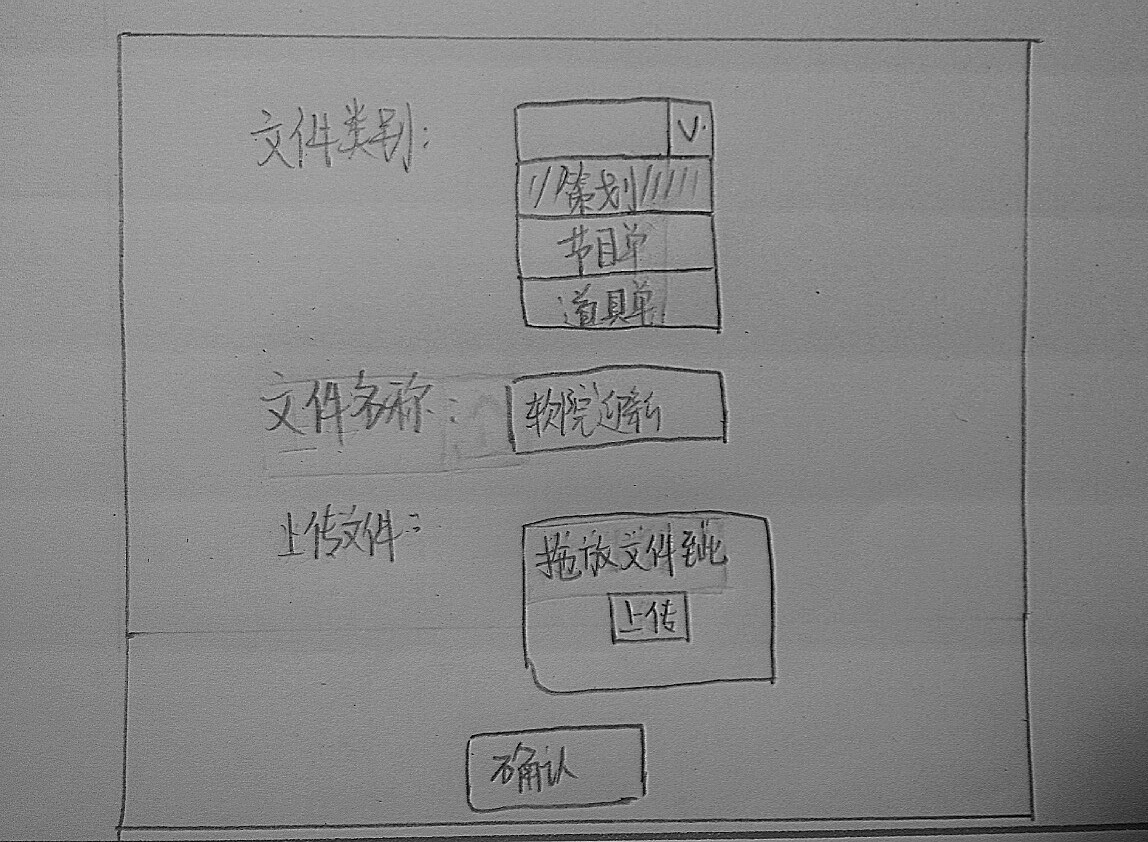 文件类别：
策划
节目单
道具单
文件名称：
软院迎新
上传文件：
拖放文件到此
上传
确认